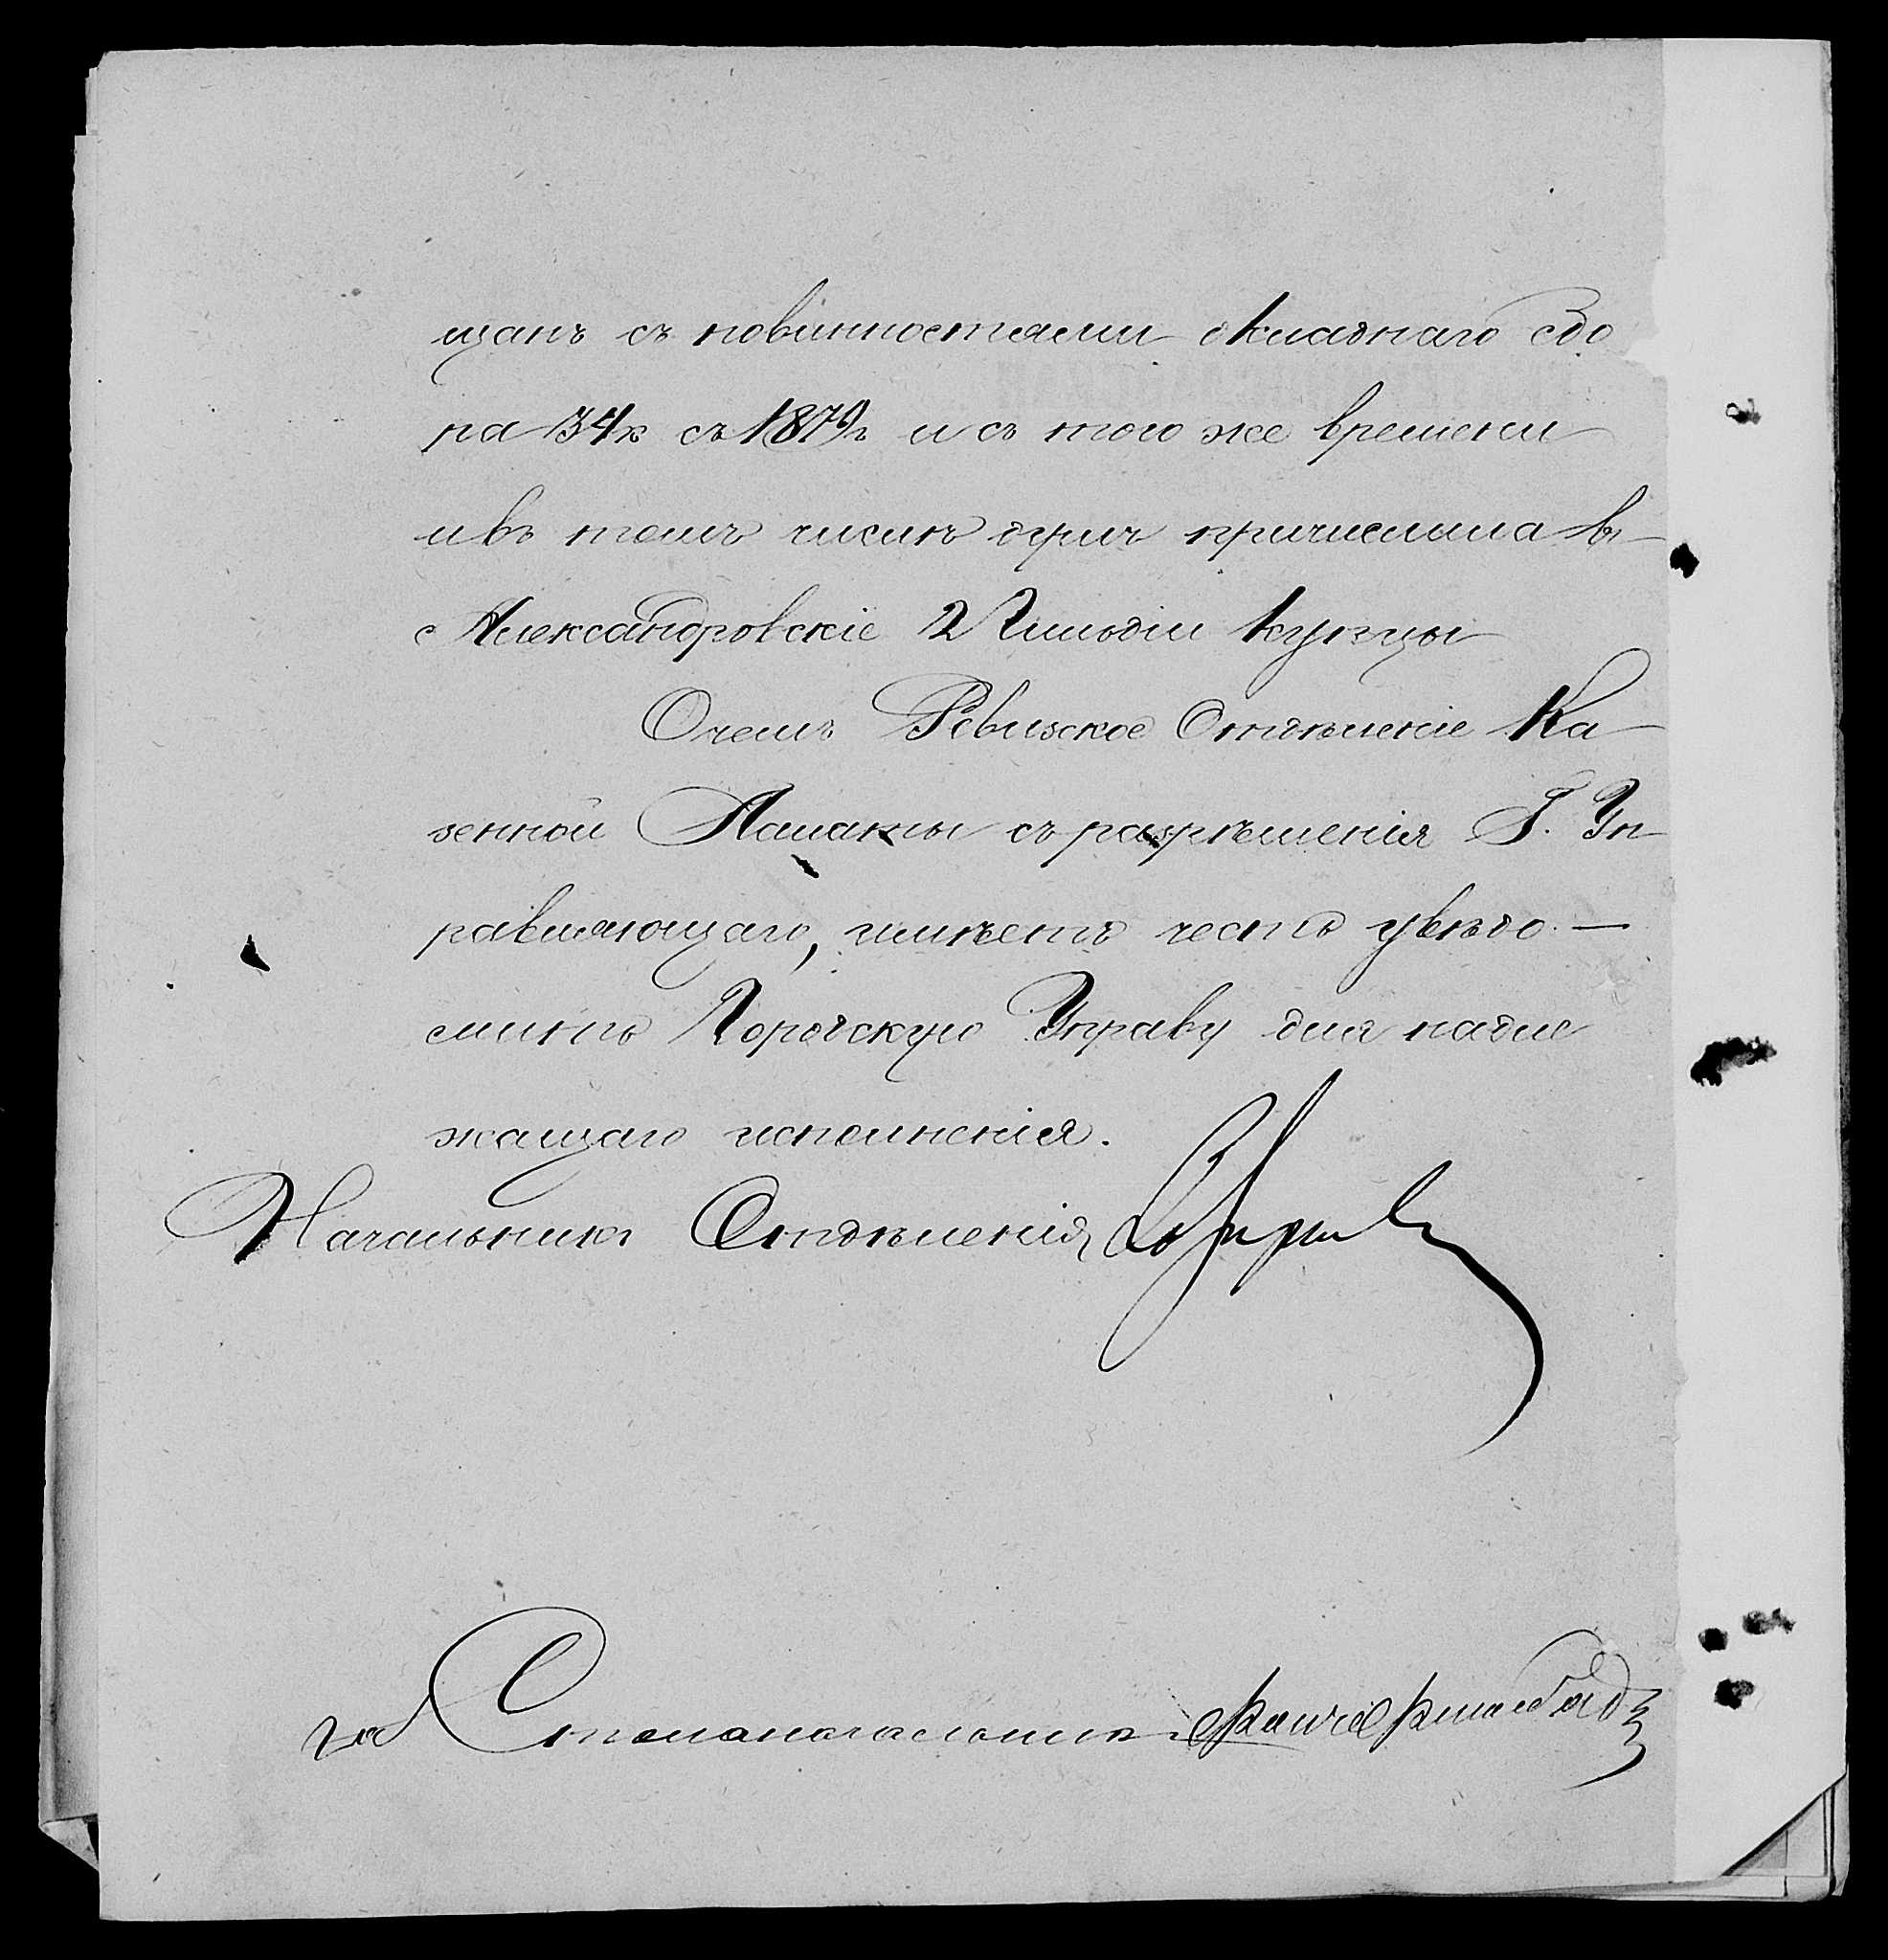 щанъ съ повинностями окладнаго сбо
ра 34 к съ 1879 г и съ того же времени
и въ томъ числѣ душъ причислила въ
Александровскіе 2 Гильдіи купцы
О чемъ Ревизское Отдѣленіе Ка-
зенной Палаты съ разрѣшенія Г. Уп-
равляющаго, имѣетъ честь увѣдо-
мить Городскую Управу для надле
жащаго исполненія.
Начальникъ Отдѣленія
за Столоначальника